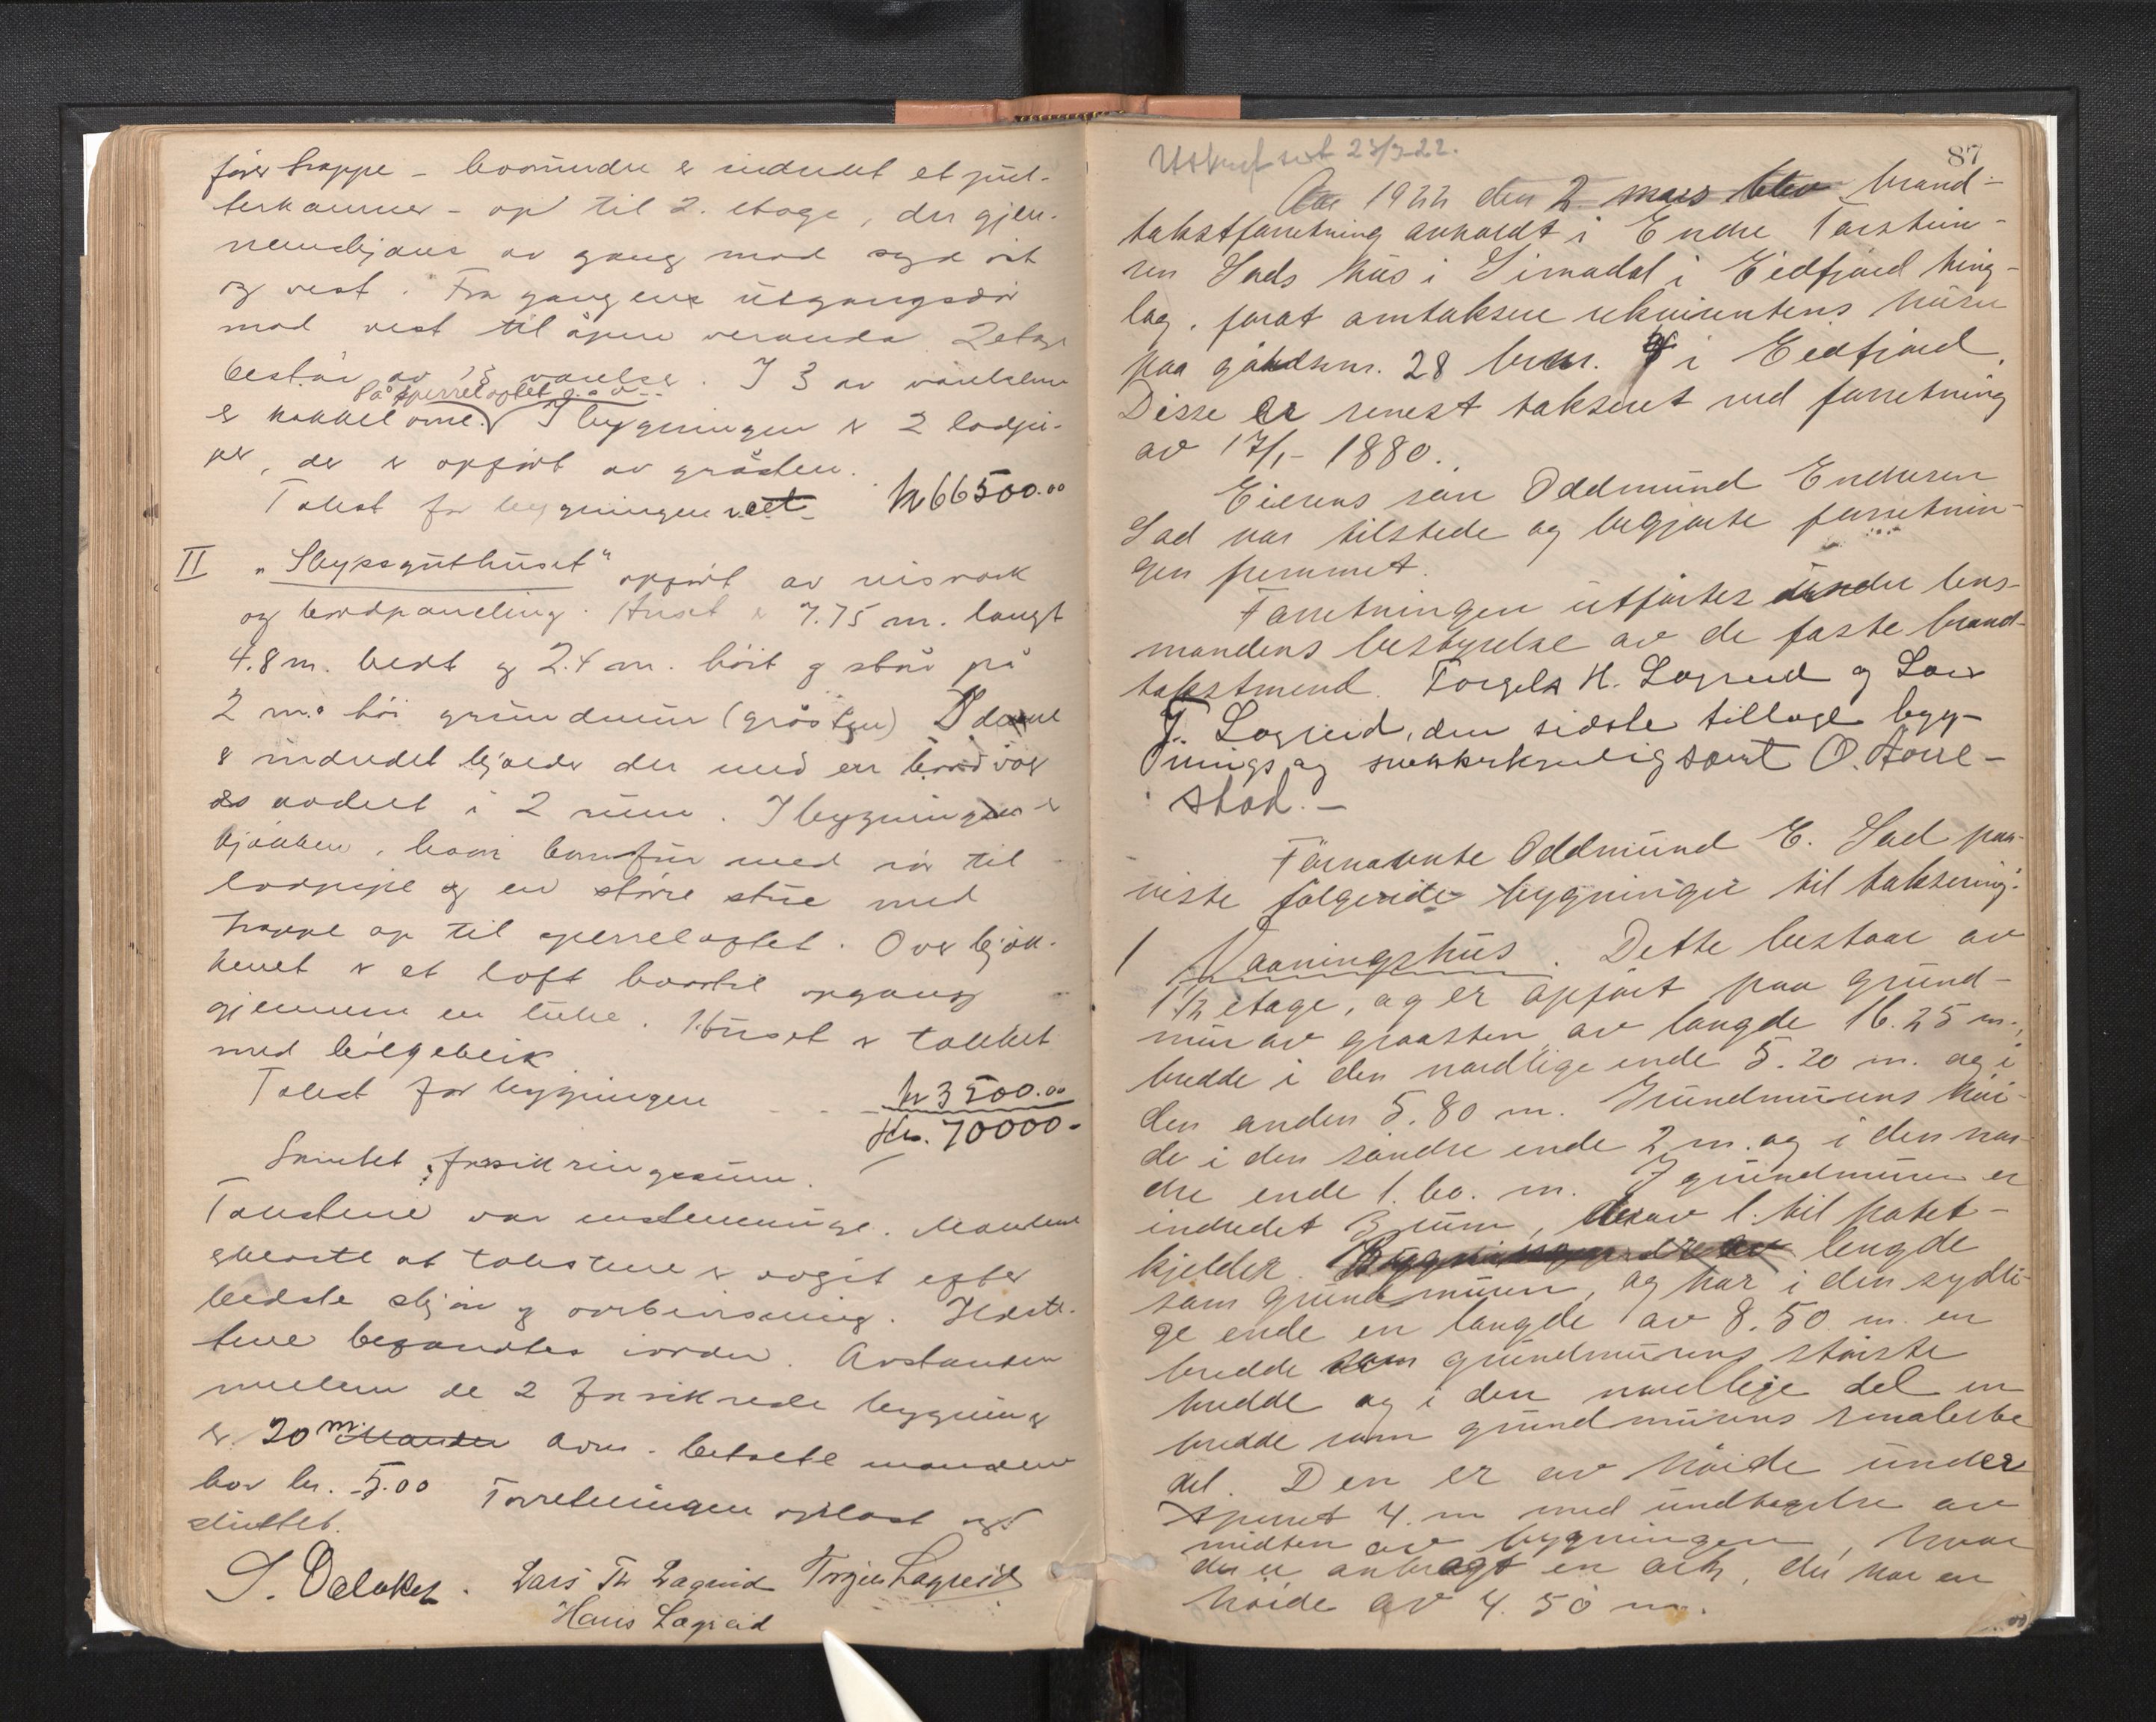 fører trappe - hvorunder er indredet et pul-
terkammer - op til 2. etage, der gjen-
nemskjæres av gang mod syd øst
og vest. Fra gangens utgangsdør
mod vest til åpen veranda. 2 etage
består av 13 værelser. I 3 av værelsene
På sperreloftet
er kakkelovne. I bygningen er 2 lodpi-
per, der er opført av gråsten.
Takst for bygningen kr 66500.00
II "Skyssguthuset" opført av
og bordpaneling. Huset er 7.75 m. langt
4.8 m. bredt og 2.4 m. høit og står på
2 m. høi grundmur (gråsten) I denne
er indredet kjælder der med en bordvæg
er avdelt i 2 rum. I bygningen er
kjøkken, hvor komfur med rør til
lodpipe og en større stue med
trappe op til sperreloftet. Over kjøk-
kenet er et loft hvortil opgang
gjennem en luke. Huset er tækket
med bølgeblik
Takst for bygningen kr 3500.00
Kr. 70000-
Samlet forsikringssum.
Takstene var enstemmige. Mændene
erklærte at takstene er avgit efter
bedste skjøn og overbevisning. Ildste-
dene befandtes i orden. Avstanden
mellem de 2 forsikrede bygninger
er 20 m
kr. 5.00 Forretningen oplæst og
sluttet.
S. Dalaker. Lars Th Lægreid Torgeir Lægreid
Hans Lægreid
Utskrift sent 23/3-22.
87
Aar 1922 den 2 mars blev brand-
takstforretning avholdt i Endre Torstein-
sen Sads hus i Simadal i Eidfjord ting-
lag, forat omtaksere rekvirentens huse
paa gaardsnr. 28 brnr. i Eidfjord.
Disse er senest taksert ved forretning
av 17/1- 1880.
Eierens søn Oddmund Endresen
Sad var tilstede og begjærte forretnin-
gen fremmet.
Forretningen utførtes under lens-
mandens bestyrelse av de faste brand-
takstmænd. Torgils H. Lægreid og Lars
T. Lægreid, den sidste tillage byg-
nings og snekkerkyndig samt O. Horre-
stad. -
Fornævnte Oddmund E. Sad paa-
viste følgende bygninger til taksering:
1 Vaaningshus. Dette bestaar av
1 1/2 etage, og er opført paa grund-
mur av graasten av længde 16.25 m.,
bredde i den nordlige ende 5.20 m. og i
den anden 5.80 m. Grundmurens høi-
de i den søndre ende 2 m. og i den nor-
dre ende 1.60. m. I grundmuren er
indredet 3 rum, derav 1. til potet-
kjelder. lengde
som grundmuren, og har i den sydli-
ge ende en længde av 8.50 m. en
bredde som grundmurens største
bredde og i den nordlige del en
bredde som grundmurens smaleste
del. Den er av høide under
spenet 4. m med undtagelse av
midten av bygningen, hvor
der er anbragt en ark, der har en
høide av 4.50 m.